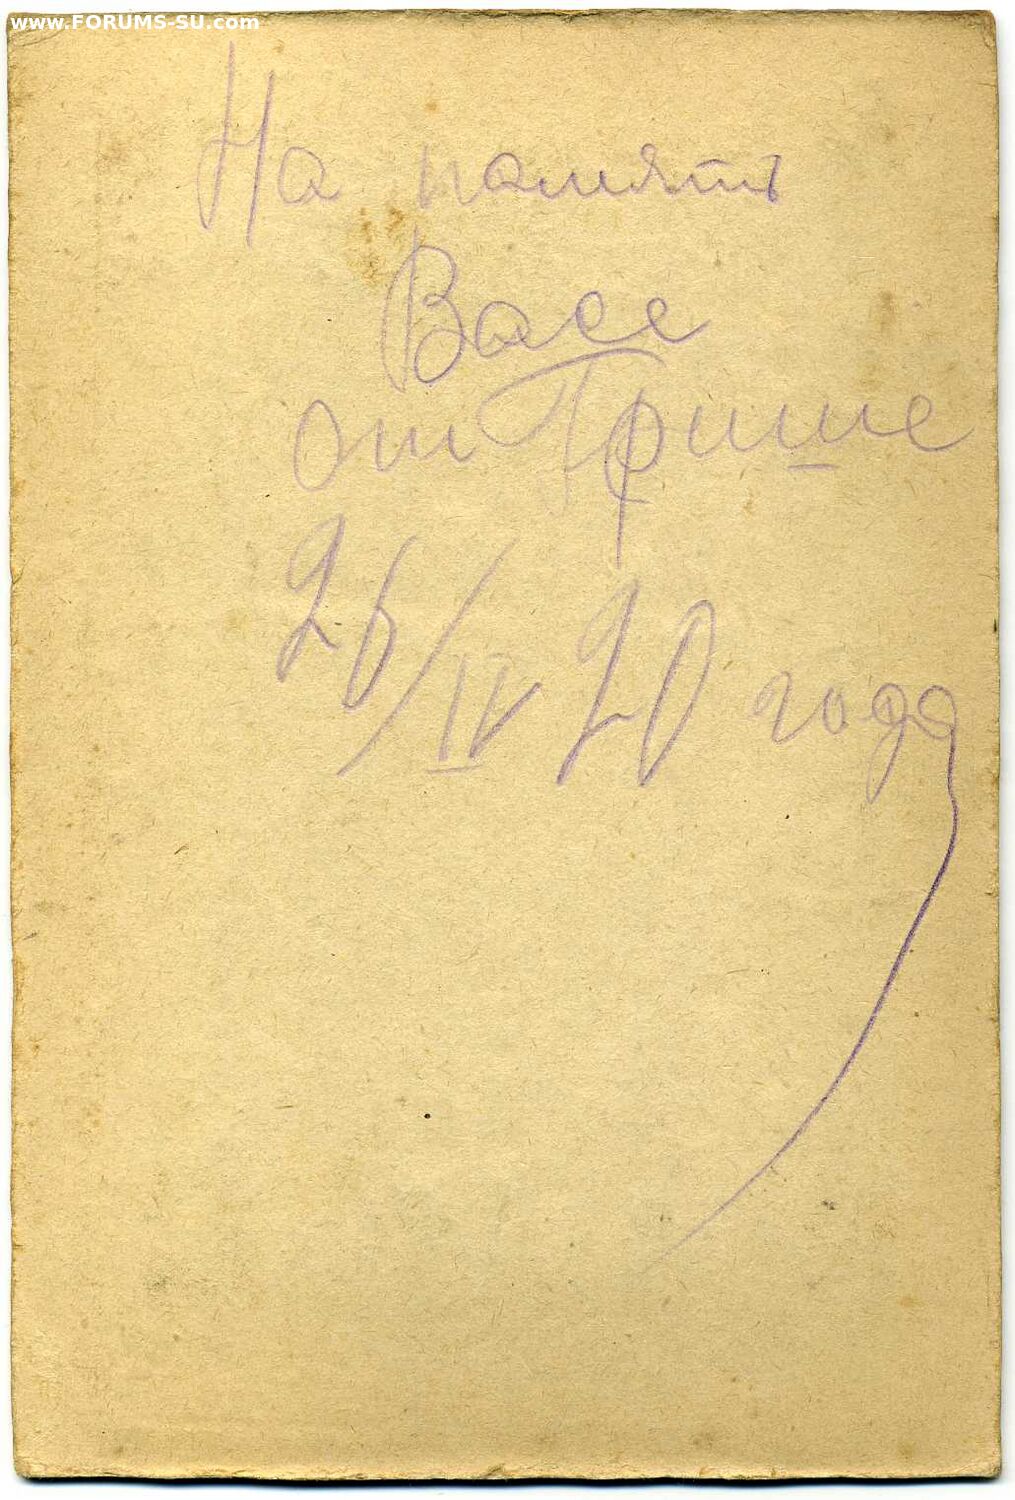 www.FORUMS-SU.com
На память
Васе
от Грише
26/IV 20 года